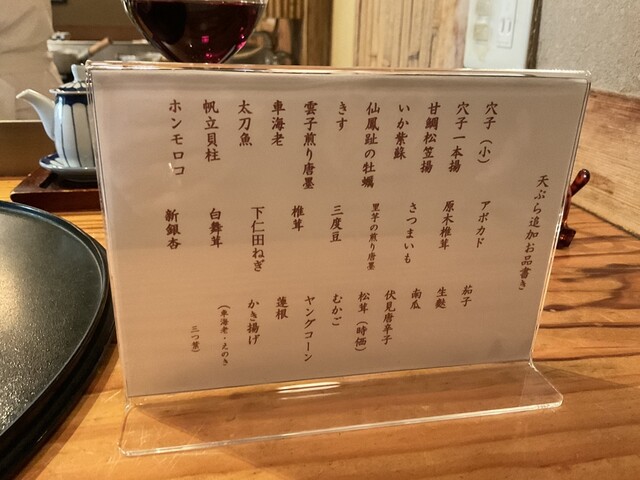 天ぷら追加お品書き
穴子（小）
穴子一本揚
甘鯛松笠揚
いか紫蘇
仙鳳趾の牡蠣
きす
雲子煎り唐墨
車海老
太刀魚
帆立貝柱
ホンモロコ
アボカド
原木椎茸
さつまいも
里芋の煎り唐墨
三度豆
椎茸
下仁田ねぎ
白舞茸
新銀杏
茄子
生麩
南瓜
伏見唐辛子
松茸（時価）
むかご
ヤングコーン
蓮根
かき揚げ
（車海老・えのき
三つ葉）